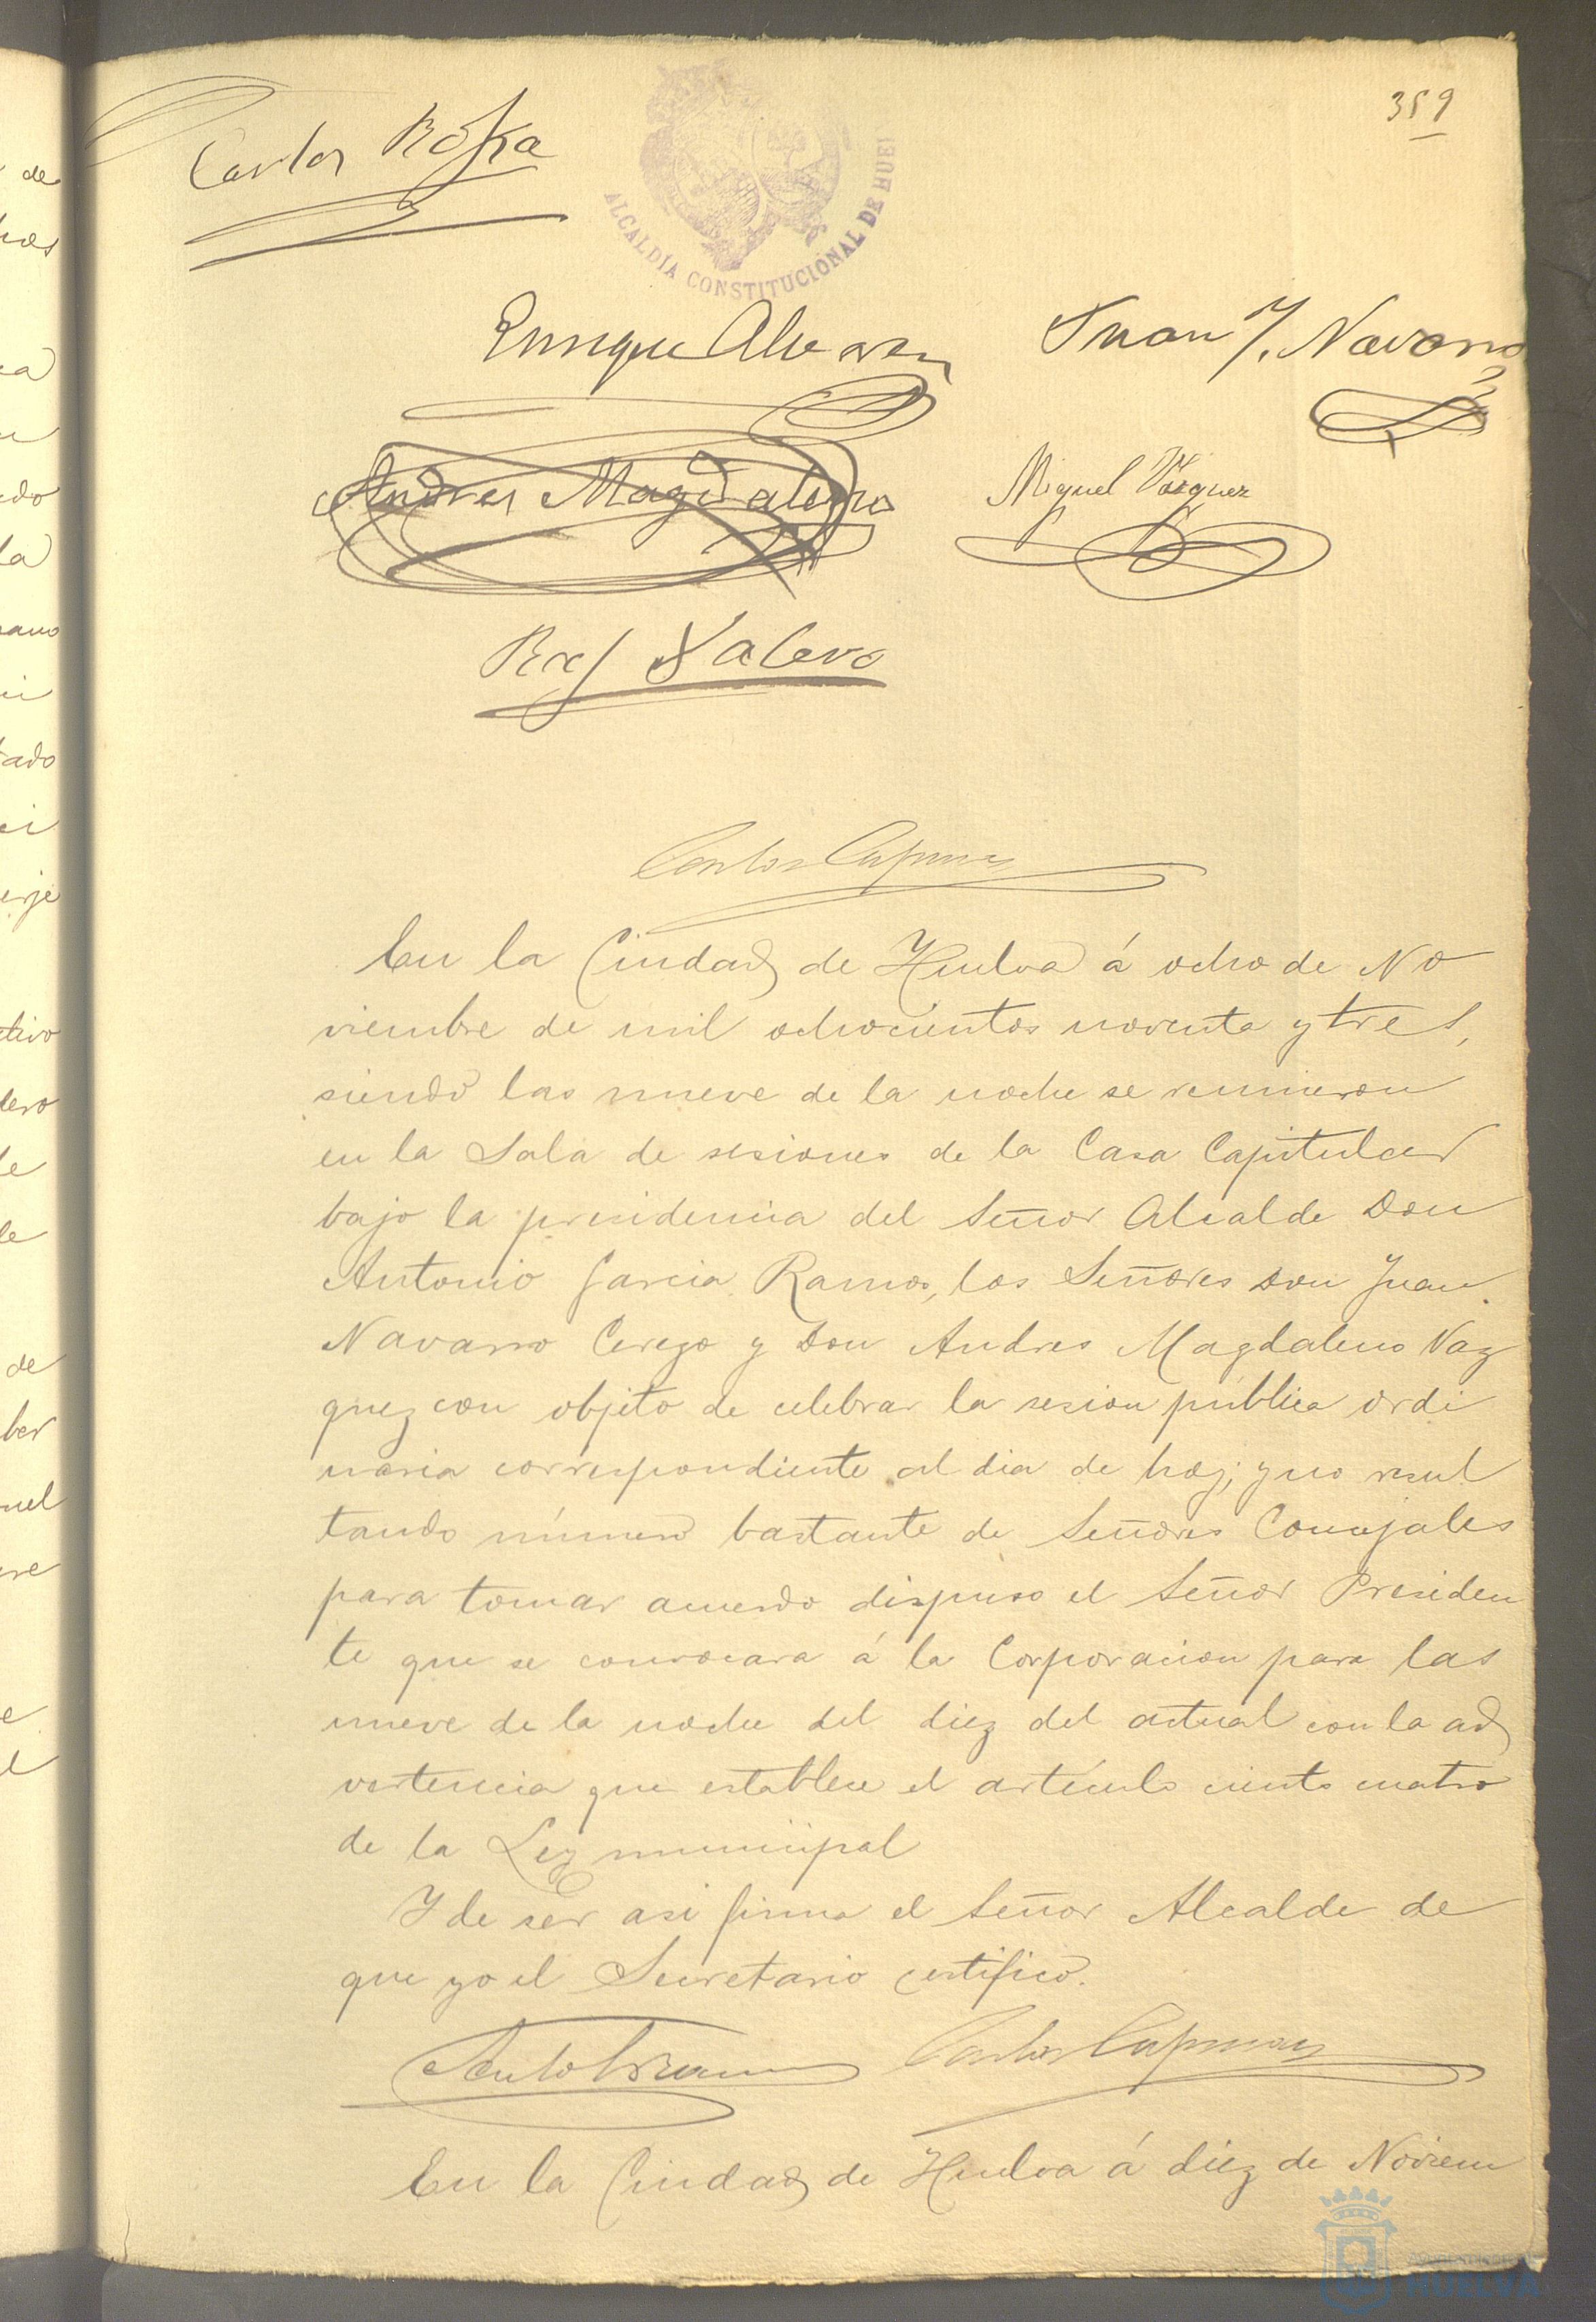 359
Carlos
ALCALDÍA CONSTITUCIONAL DE HUEL
Enrique Alvarez Juan J. Navarro
Andres Magdaleno Miguel Vázquez
Carlos
En la Ciudad de Huelva á ocho de No
viembre de mil ochocientos noventa y tres,
siendo las nueve de la noche se reunieron
en la Sala de sesiones de la Casa Capitular
bajo la presidencia del Señor Alcalde Don
Antonio Garcia Ramos, los Señores Don Juan
Navarro Cerezo y Don Andres Magdaleno Vaz
quez con objeto de celebrar la sesion pública ordi
naria correspondiente al dia de hoy; y no resul
tando número bastante de Señores Concejales
para tomar acuerdo dispuso el Señor Presiden
te que se convocara á la Corporacion para las
nueve de la noche del diez del actual con la ad
vertencia que establece el artículo ciento cuatro
de la Ley municipal
Y de ser asi firma el Señor Alcalde de
que yo el Secretario certifico.
Carlos
En la Ciudad de Huelva á diez de Noviem
HUELVA